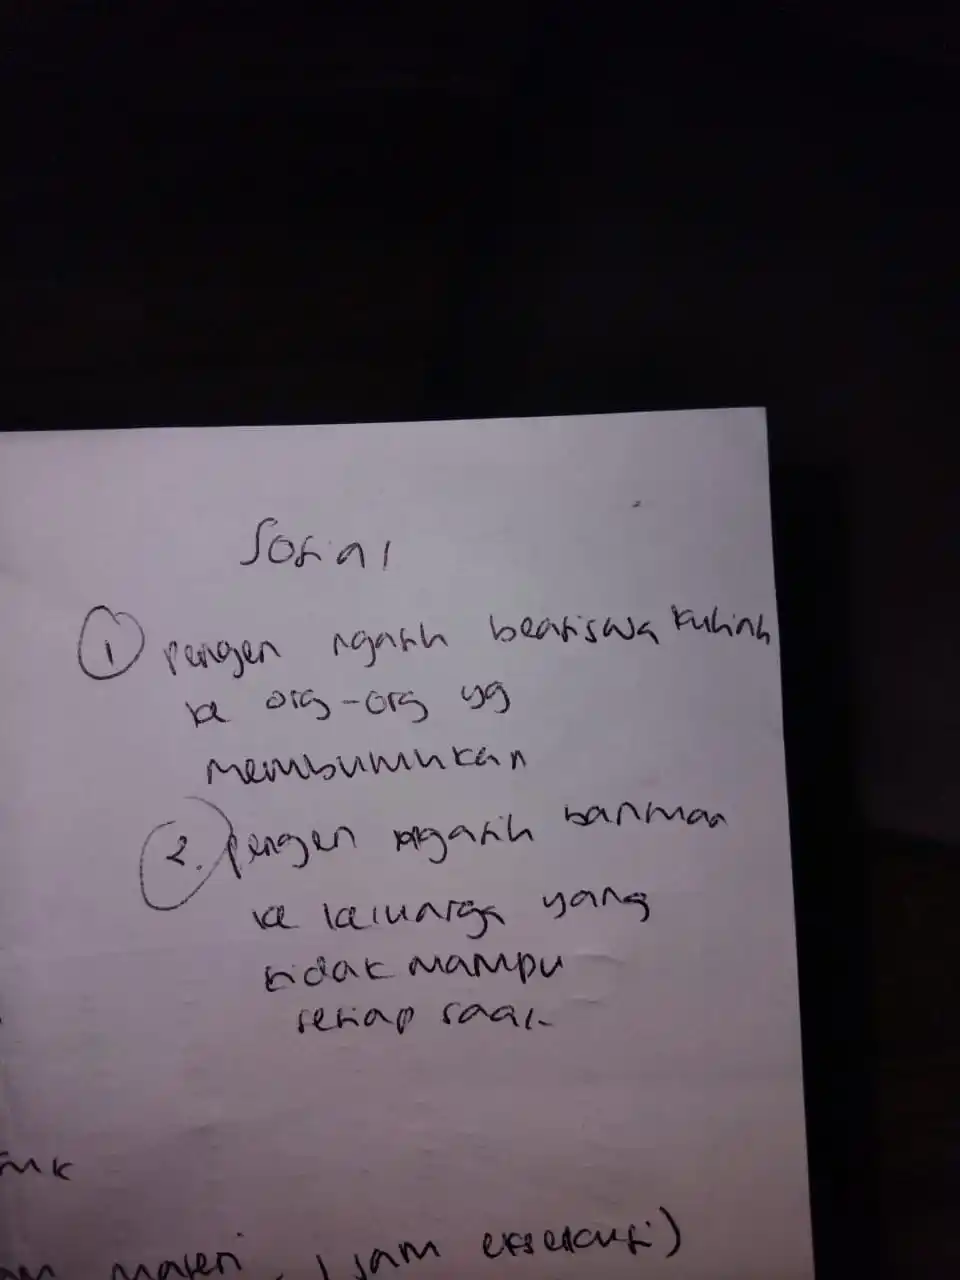 Sosial
1 pengen ngasih beasiswa kuliah
ke org-org yg
membutuhkan
2. pengen ngasih bantuan
ke keluarga yang
tidak mampu
setiap saat.
materi 1 jam eksekusi)